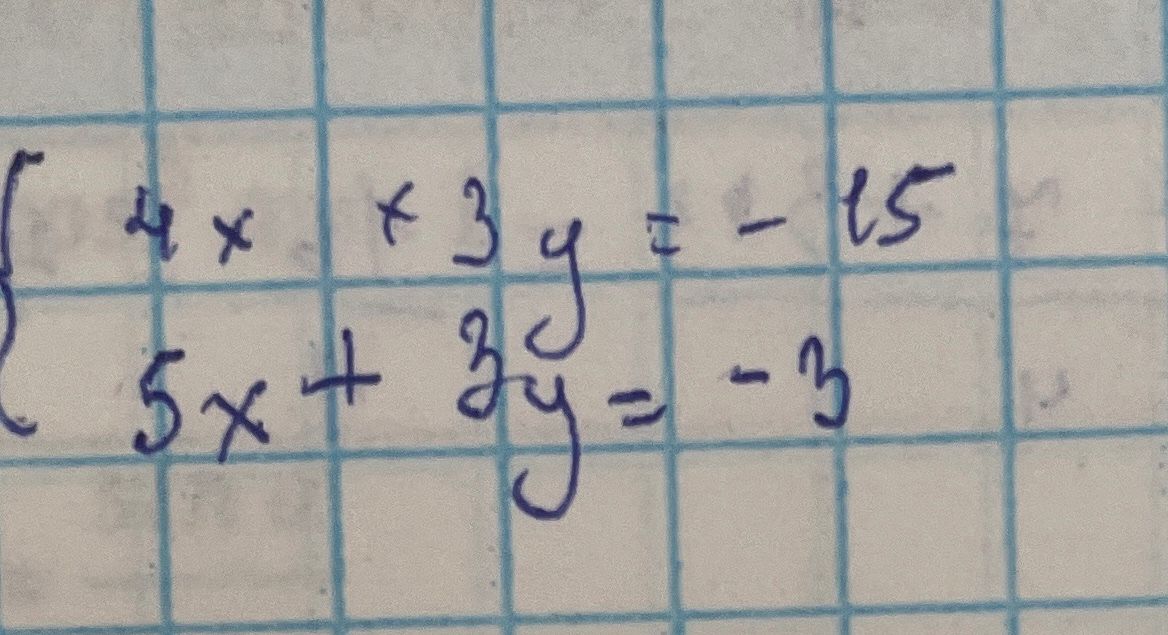 4x + 3y = - 15
5x + 3y = - 3